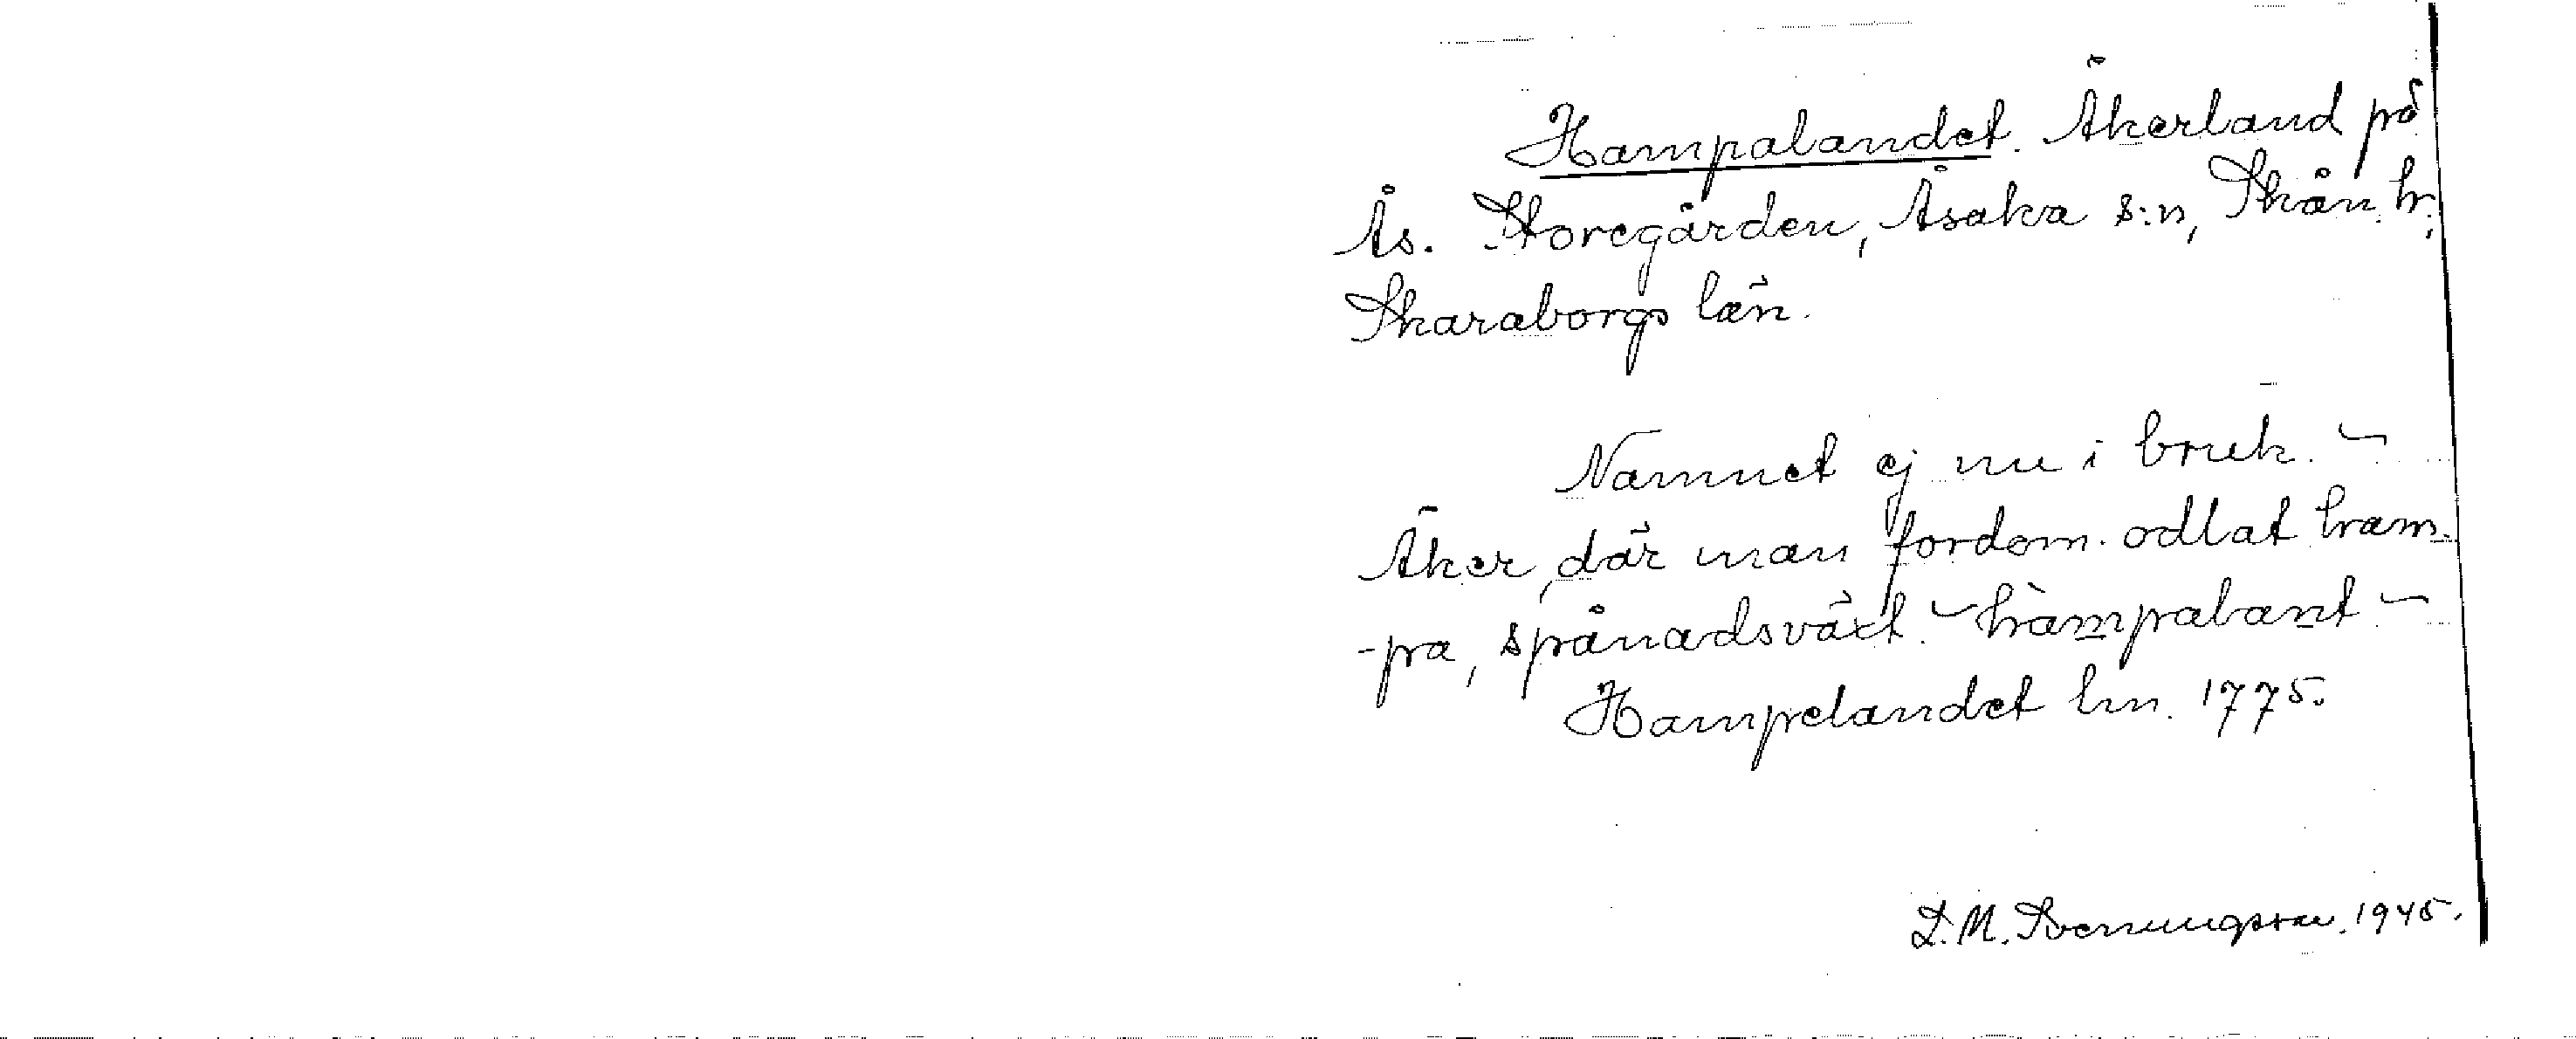 Hampalandet. Åkerland på
Ås. Storegården, Åsaka s:n, Skån. hr,
Skaraborgs län.
Namnet ej nu i bruk. –
Åker, där man fordom odlat ham-
-pa, spånadsväxt. – hàmpalant –
Hampelandet hm. 1775.
L. M. Svenungsson. 1945.